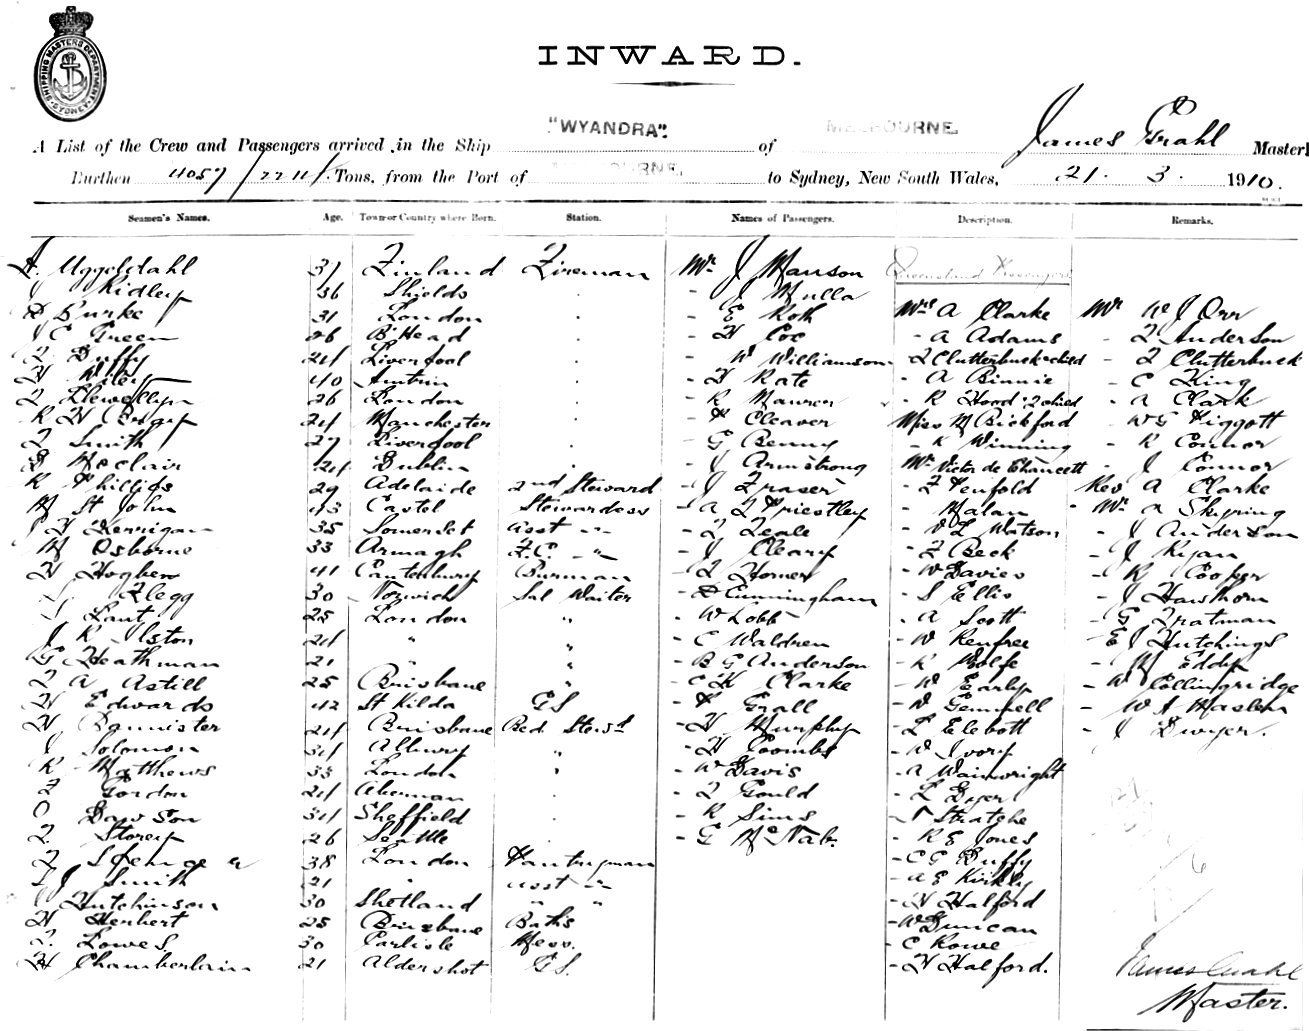 SHIPPING MASTERS DEPARTMENT
SYDNEY
INWARD.
A List of the Crew and Passengers arrived in the Ship "WYANDRA". of MELBOURNE. James Grahl Master
Burthen 4057/2211 Tons, from the Port of MELBOURNE. to Sydney, New South Wales, 21. 3. 1910.
Seamen's Names. Age. Town or Country where Born. Station. Names of Passengers. Description. Remarks.
A. Uggeldahl 37 Finland Fireman Mr J Manson Queensland Passengers
J Ridley 36 Shields - J Mulla
Burke 31 London - E Roth Mrs A Clarke Mr W J Orr
J C Green 26 B'Head - H Coe - A Adams - F Anderson
Duffy 24 Liverpool - W Williamson - F Clutterbuck & child - F Clutterbuck
W Wiley 40 Antrim - H Kate - A Binnie - C King
Llewellyn 26 London - R Maurer - R Hood & 2 child - A Clark
R H 24 Manchester - P Cleaver Miss M Bickford - W G Piggott
Smith 27 Liverpool - G Benny - R Winning - R Connor
McClair 24 Dublin - J Armstrong Mr Victor de Chancett - J Connor
R Phillips 29 Adelaide 2nd Steward - J Fraser - F Penfold Rev A Clarke
M St John 43 Castel Stewardess - A F Priestley - Malan - Mr A Skyring
J H Kerrigan 35 Somerset asst -"- - F Teale - W L Watson - J Anderson
M Osborne 33 Armagh F.C. -"- - J Cleary - F Beck - J Ryan
H Hogben 41 Cantenbury Purman - F Horner - W Davies - R Cooper
Flegg 30 Norwich Sal Waiter - Cunningham - S Ellis - J Hawthorn
Lant 25 London " - W Lobb - A Scott - G Tratman
J R Ilston 24 " " - C Waldren - W Renfree - E J Hutchings
G Heathman 21 " " - B G Anderson - R Wolfe - M Eddy
F A Astill 25 Brisbane " - C H Clarke - W Early - W Collingridge
H Edwards 42 St Kilda G.S - P Grall - W Gemmell - W J Maslen
H Bannister 24 Brisbane Bed. Stewd - H Murphy - L Elebott - J Dwyer.
J Solomon 34 Albury " - H Coombs - W Ivory
R Matthews 33 London " - W Davis - A Wainwright
F Gordon 24 - F Gould - L Dyer
O Dawson 34 Sheffield - R Sims - Strathe
F. Storey 26 Seattle - G McNab. - R E Jones
F Spencer 38 London Pantryman - C C Duffy
J Smith 21 " asst -"- - A E Kirkly
Hutchinson 30 Shetland " " - H Halford
H Herbert 25 Brisbane Baths - W Duncan
F. Lowes. 30 Carlisle Mess. - C Rowe
H Chamberlain 21 Aldershot G.S. - H Halford.
James Grahl
Master.